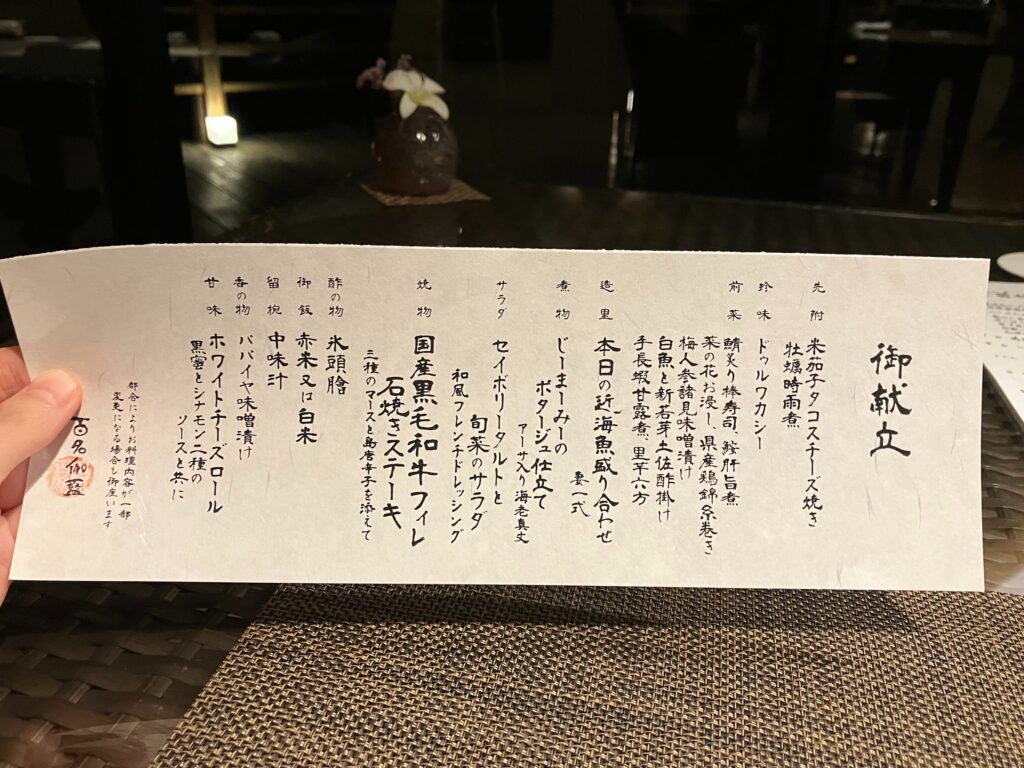 御献立
先附 米茄子タコスチーズ焼き
牡蠣時雨煮
珍味 ドゥルワカシー
前菜 鯖炙り棒寿司、鮟肝旨煮
菜の花お浸し、県産鶏錦糸巻き
梅人参諸見味噌漬け
白魚と新若芽土佐酢掛け
手長蝦甘露煮、里芋六方
造里 本日の近海魚盛り合わせ
妻一式
煮物 じーまーみーの
ポタージュ仕立て
アーサ入り海老真丈
サラダ セイボリータルトと
旬菜のサラダ
和風フレンチドレッシング
焼物 国産黒毛和牛フィレ
石焼きステーキ
三種のマースと島唐辛子を添えて
酢の物 氷頭膾
御飯 赤米又は白米
留椀 中味汁
香の物 パパイヤ味噌漬け
甘味 ホワイトチーズロール
黒蜜とシナモン二種の
ソースと共に
都合によりお料理内容が一部
変更になる場合も御座います
百名伽藍